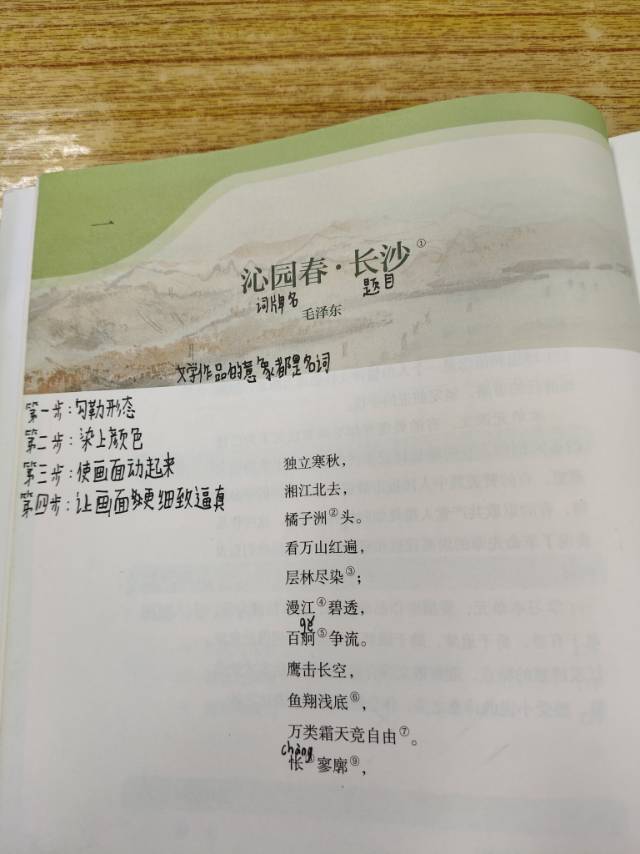 一
沁园春·长沙①
词牌名 题目
毛泽东
文学作品的意象都是名词
第一步:勾勒形态
第二步:染上颜色
第三步:使画面动起来
第四步:让画面更细致逼真
独立寒秋,
湘江北去,
橘子洲②头。
看万山红遍,
层林尽染③;
漫江④碧透,
gě
百舸⑤争流。
鹰击长空,
鱼翔浅底⑥,
万类霜天竞自由⑦。
chàng
怅⑧寥廓⑨,